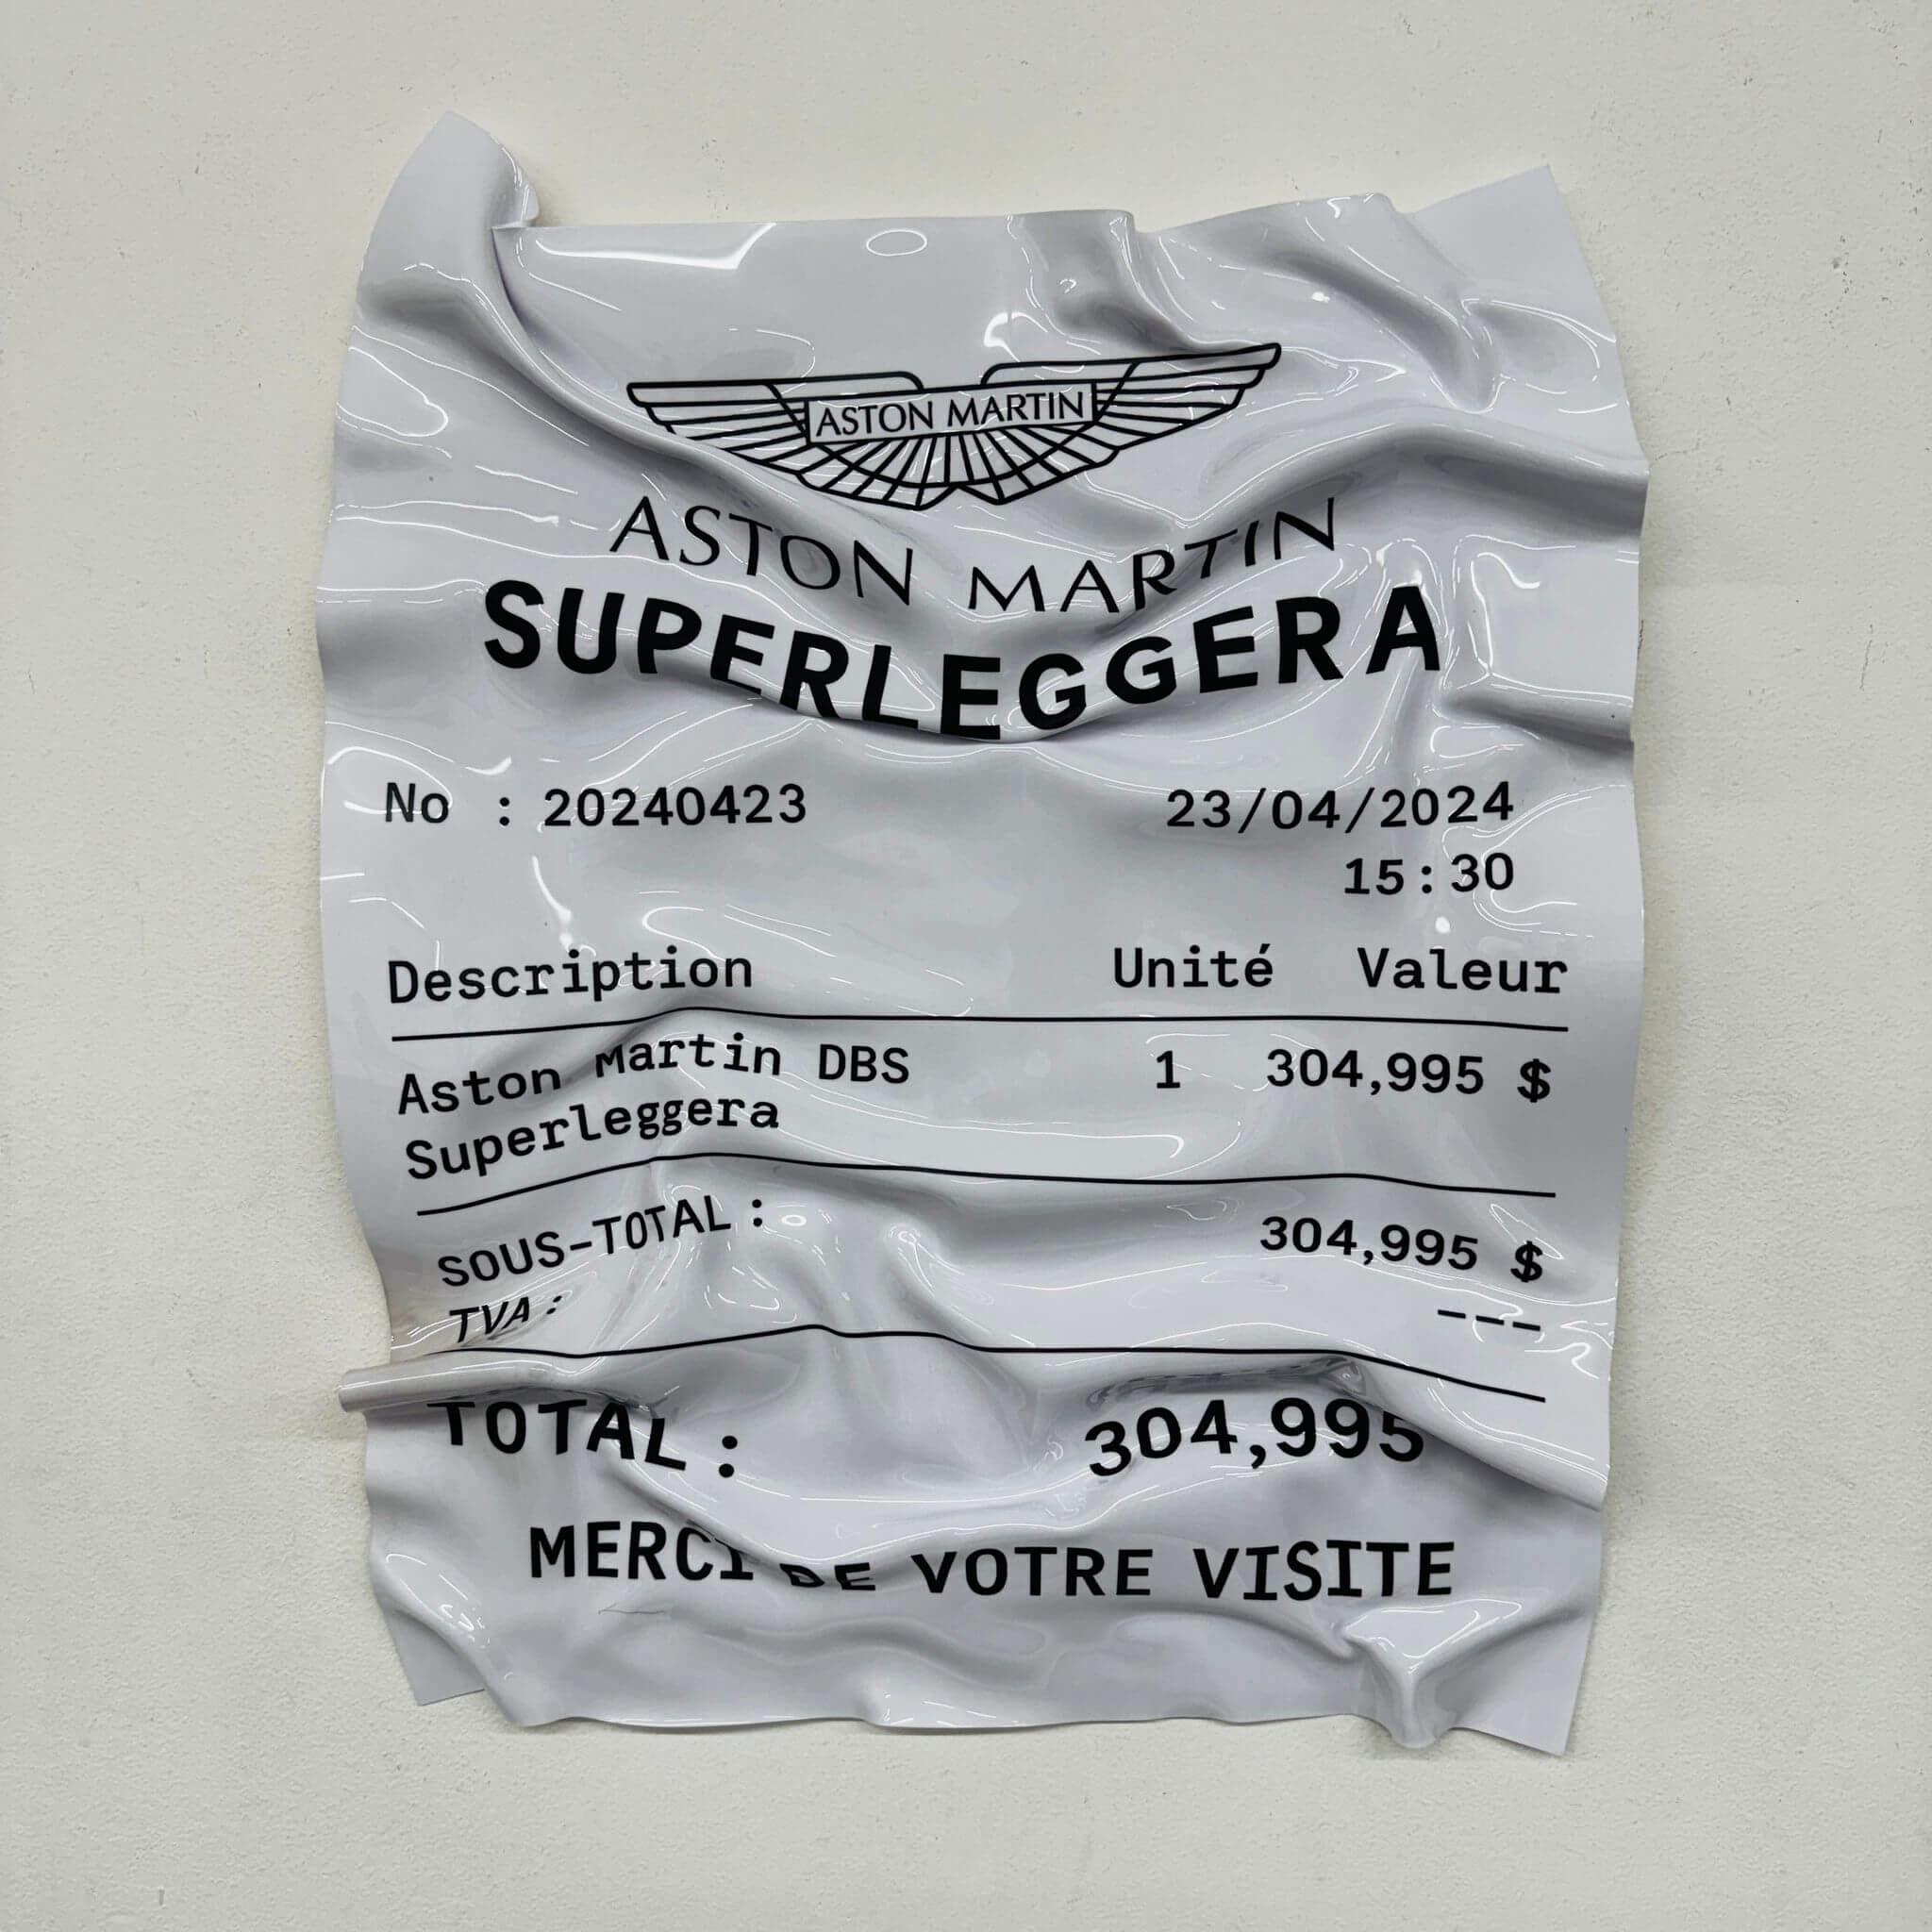 ASTON MARTIN
ASTON MARTIN
SUPERLEGGERA
No : 20240423 23/04/2024
15:30
Description Unité Valeur
Aston Martin DBS 1 304,995 $
Superleggera
SOUS-TOTAL : 304,995 $
TVA : ---
TOTAL : 304,995
MERCI DE VOTRE VISITE